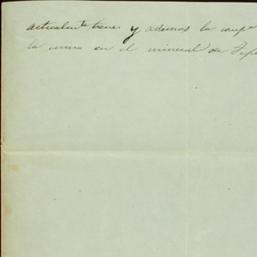 actualmte tiene y ademas la comp
la mina en el mineral de Tepe